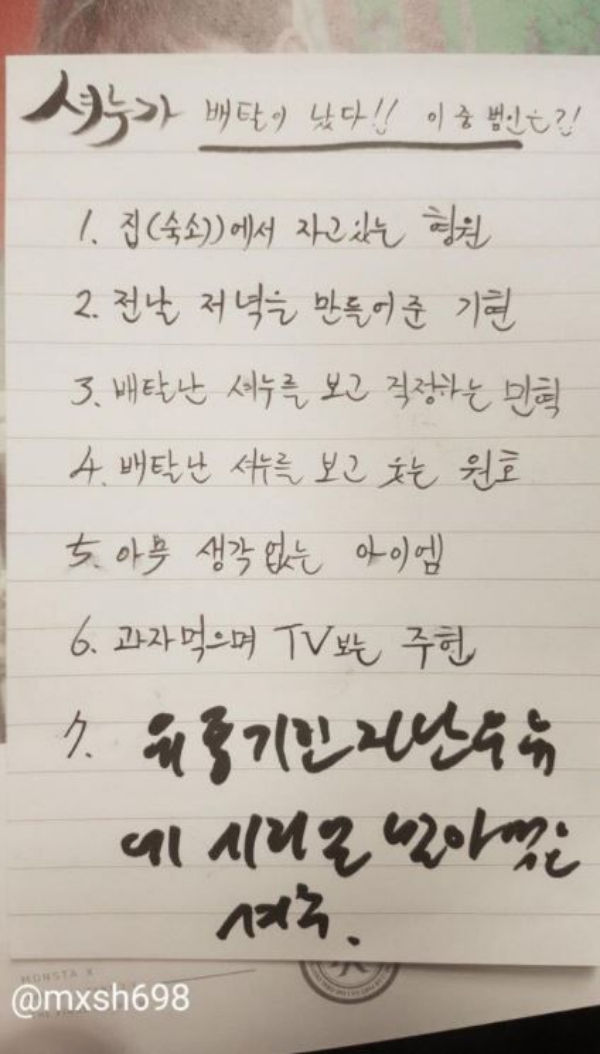 셔누가 배탈이 났다!! 이 중 범인은?!
1. 집(숙소))에서 자고있는 형원
2. 전날 저녁을 만들어준 기현
3. 배탈난 셔누를 보고 걱정하는 민혁
4. 배탈난 셔누를 보고 웃는 원호
5. 아무 생각없는 아이엠
6. 과자먹으며 TV보는 주헌
7. 유통기한 지난 우유
에 시리얼 말아먹은
셔누.
MONSTA X
@mxsh698